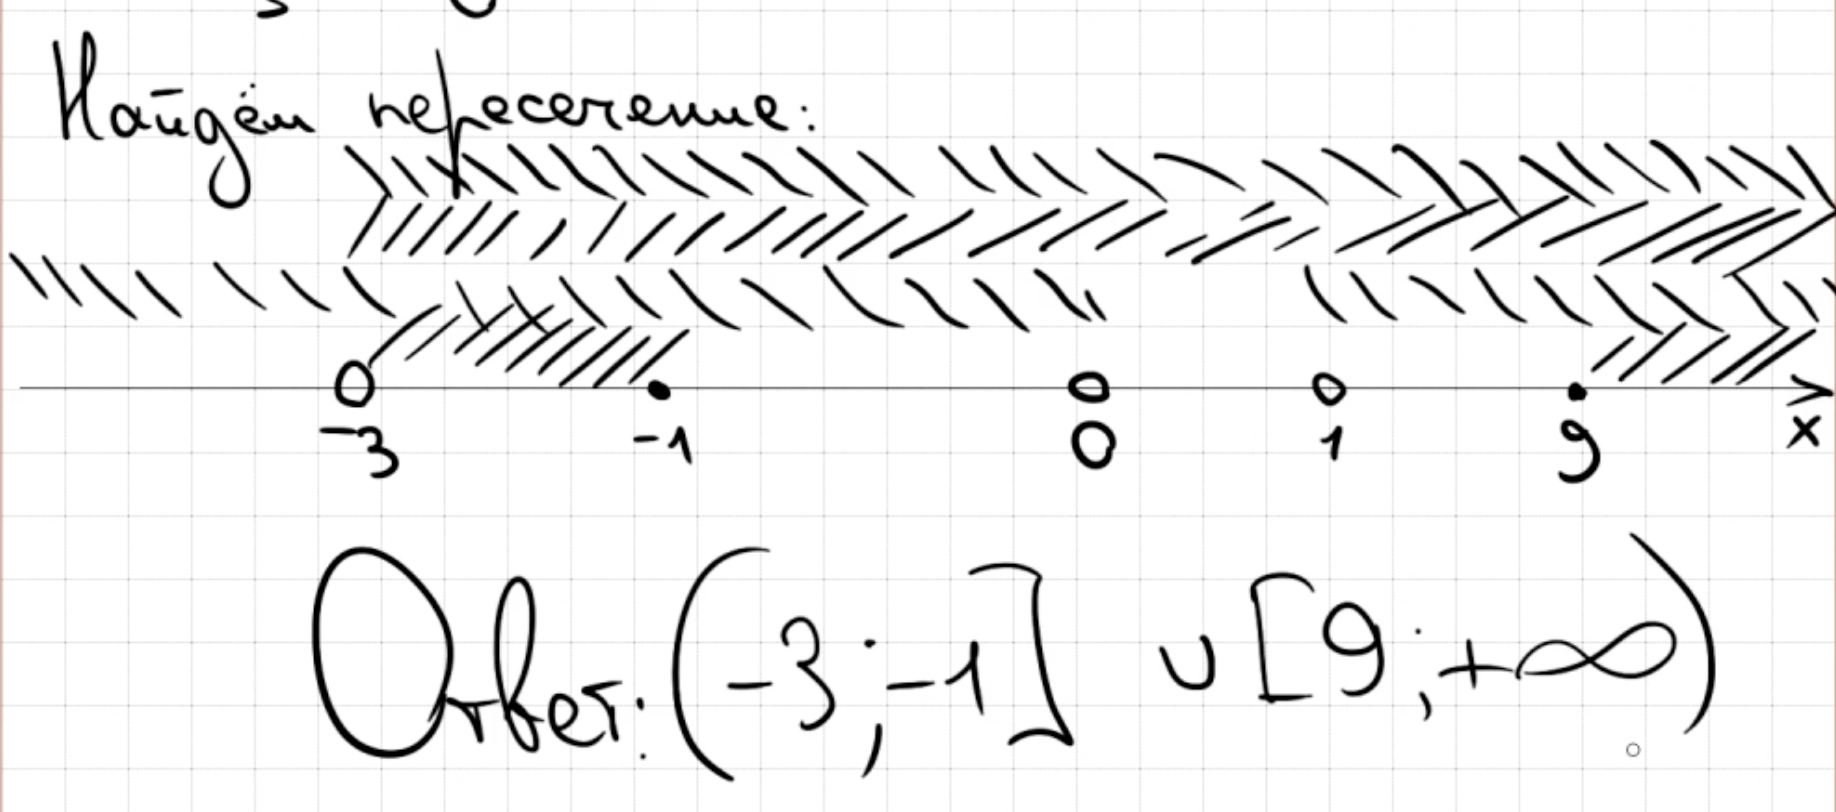 Найдём пересечение:
-3 -1 0 1 9 x
Ответ: (-3; -1] ∪ [9; +∞)